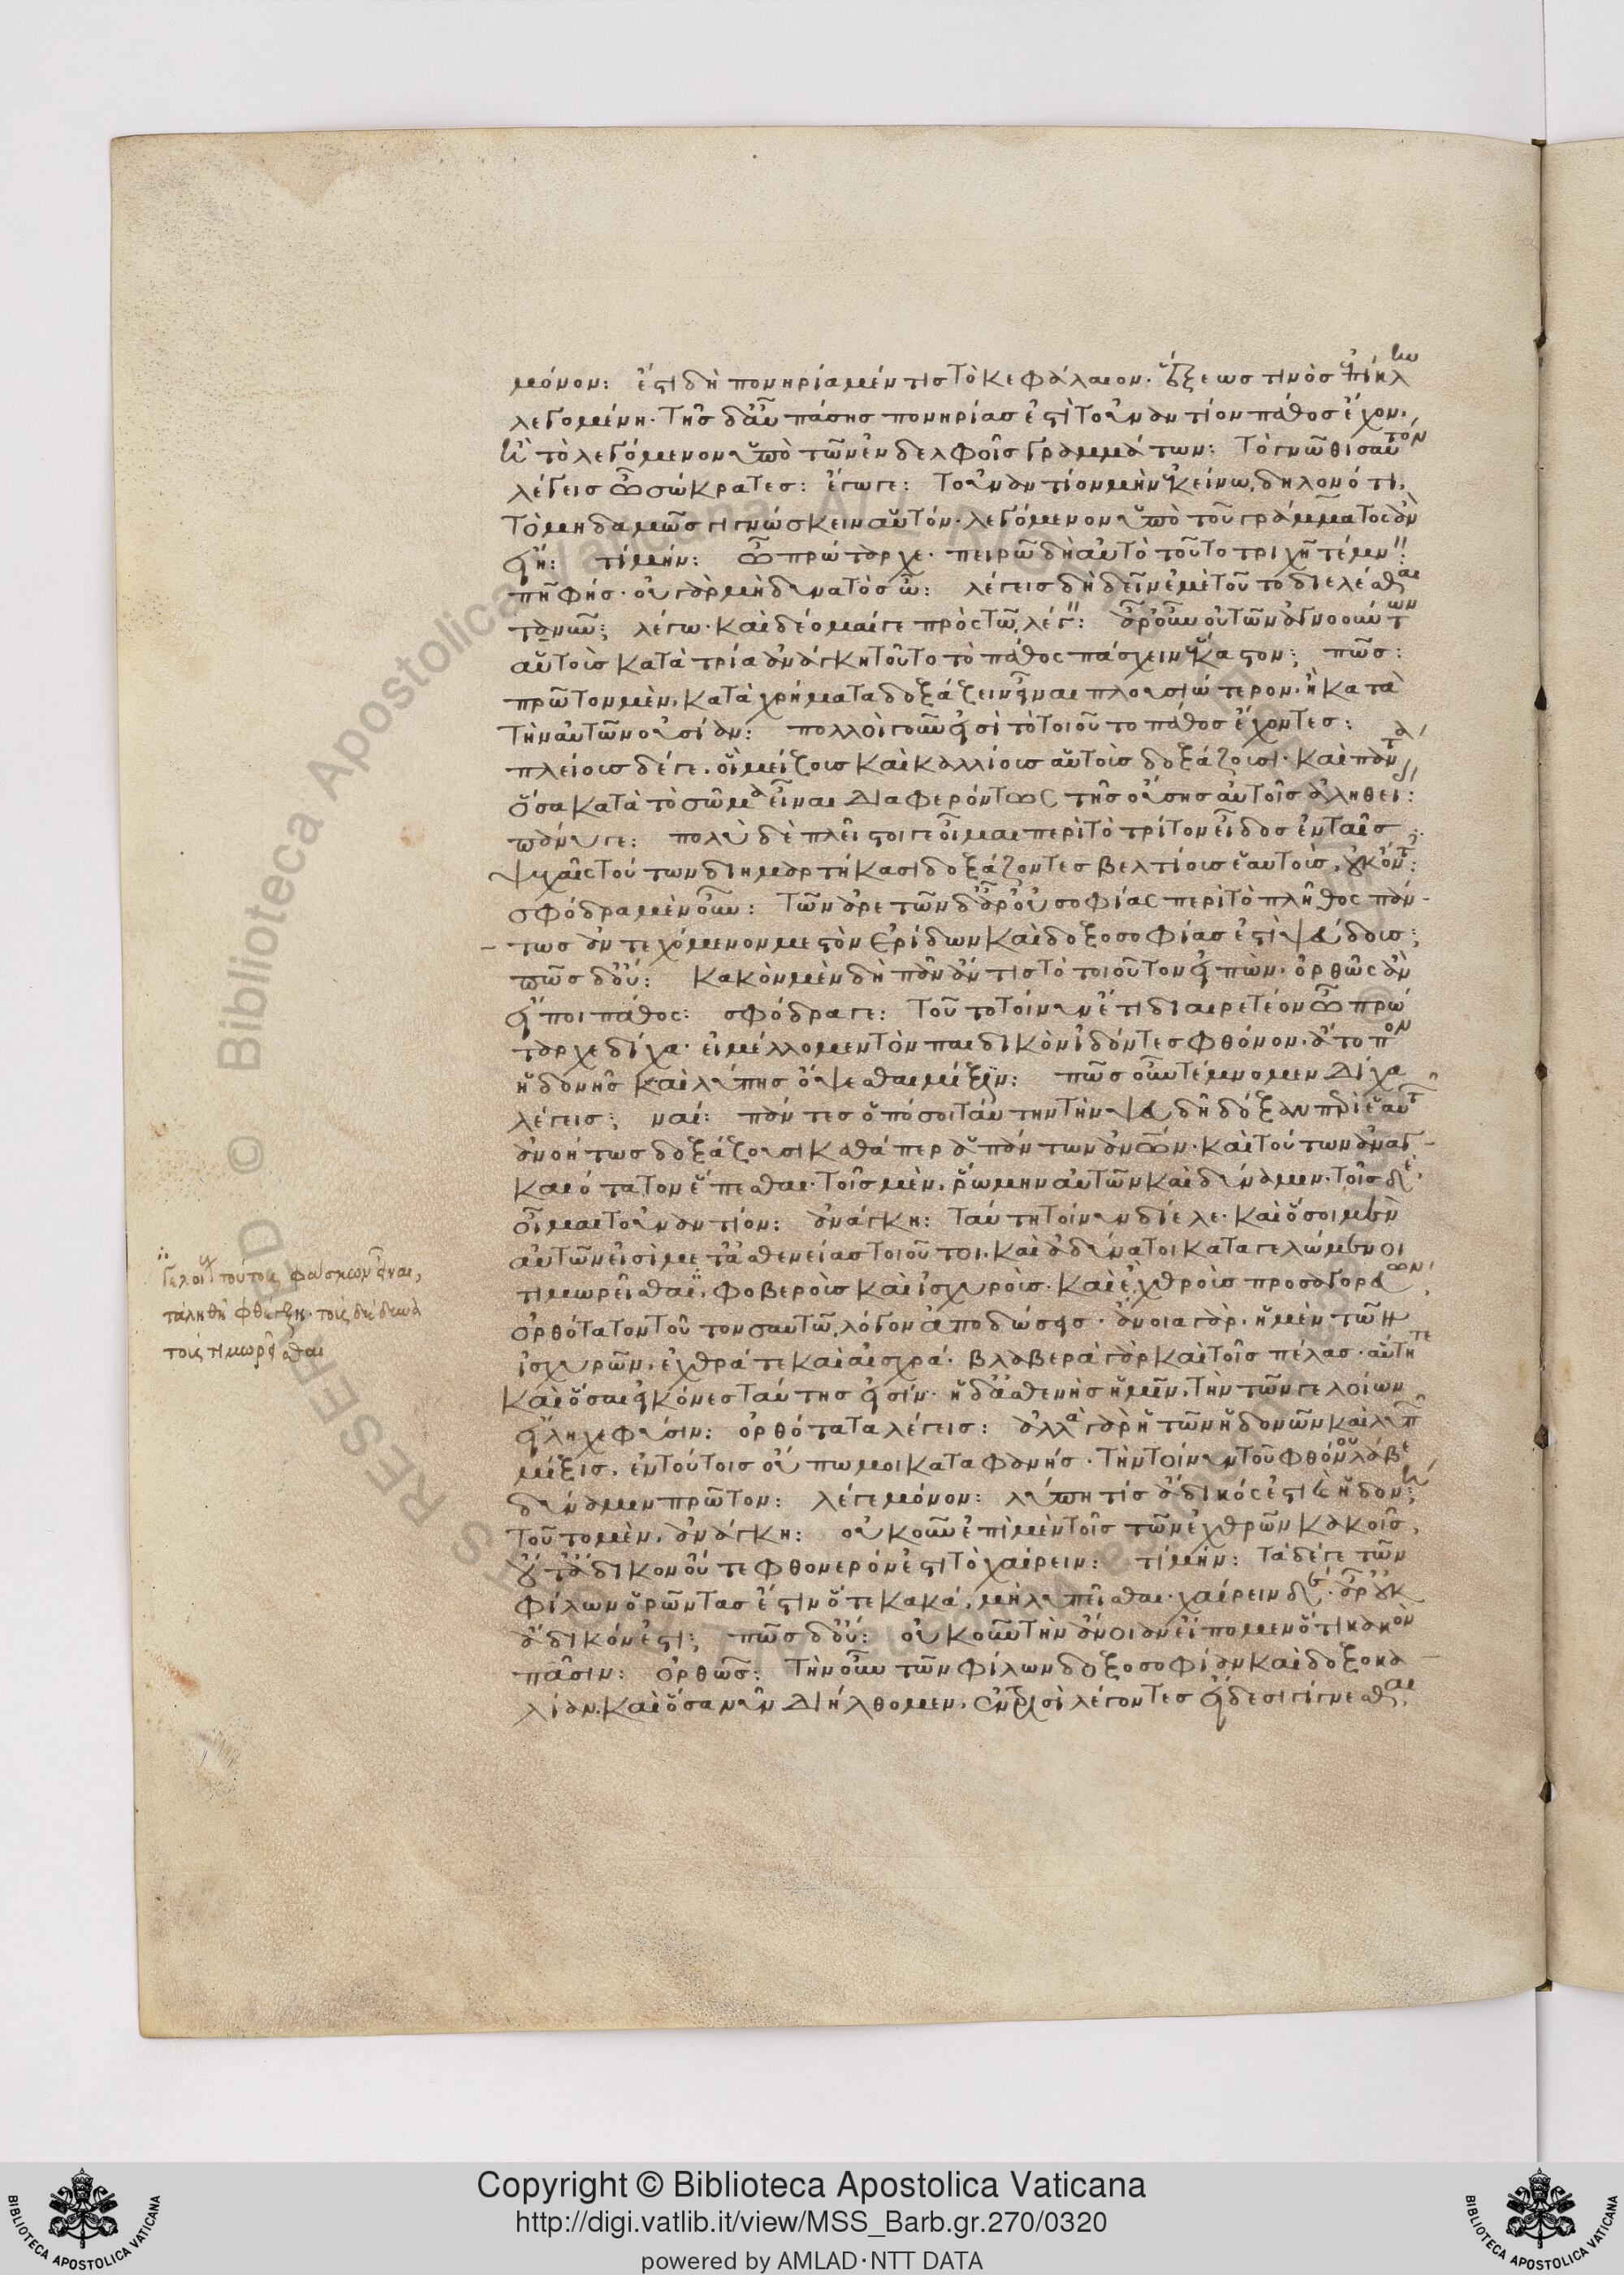 μόνον: ἔστι δὴ πονηρία μέν τις τὸ κεφάλαιον. ἕξεώς τινος ἐπίκλην
λεγομένη. τῆς δ' αὖ πάσης πονηρίας ἐστὶ τοὐναντίον πάθος ἔχον.
ἢ τὸ λεγόμενον ὑπὸ τῶν ἐν δελφοῖς γραμμάτων: τὸ γνῶθι σαυτὸν
λέγεις ὦ σώκρατες: ἔγωγε: τοὐναντίον μὴν ἐκείνω, δηλονότι,
τὸ μηδαμῶς γιγνώσκειν αὑτόν. λεγόμενον ὑπὸ τοῦ γράμματος ἂν
εἴη: τί μήν: ὦ πρώταρχε. πειρῶ δὴ αὐτὸ τοῦτο τριχῇ τέμνειν:
πῇ φής. οὐ γὰρ μὴ δυνατὸς ὦ: λέγεις δὴ δεῖν ἐμὲ τοῦτο διελέσθαι
τανῦν; λέγω. καὶ δέομαί γε πρὸς τῶ λέγειν: ἆρ' οὖν οὐ τῶν ἀγνοούντων
αὑτοὺς κατὰ τρία ἀνάγκη τοῦτο τὸ πάθος πάσχειν ἕκαστον; πῶς:
πρῶτον μὲν, κατὰ χρήματα δοξάζειν εἶναι πλουσιώτερον. ἢ κατὰ
τὴν αὐτῶν οὐσίαν: πολλοὶ γοῦν εἰσὶ τὸ τοιοῦτο πάθος ἔχοντες:
πλείους δέ γε, οἳ μείζους καὶ καλλίους αὑτοὺς δοξάζουσι. καὶ πάντα
ὅσα κατὰ τὸ σῶμα εἶναι διαφερόντως τῆς οὔσης αὐτοῖς ἀληθείας:
πάνυ γε: πολὺ δὲ πλεῖστοί γε οἶμαι περὶ τὸ τρίτον εἶδος ἐν ταῖς
ψυχαῖς τούτων διημαρτήκασι δοξάζοντες βελτίους ἑαυτοὺς, οὐκ ὄντες:
σφόδρα μὲν οὖν: τῶν ἀρετῶν δ' ἆρ' οὐ σοφίας περὶ τὸ πλῆθος πάν-
τως ἀντεχόμενον μεστὸν ἐρίδων καὶ δοξοσοφίας ἐστὶ ψεύδους;
πῶς δ' οὔ: κακὸν μὲν δὴ πᾶν ἄν τις τὸ τοιοῦτον εἰπὼν. ὀρθῶς ἂν
εἴποι πάθος: σφόδρα γε: τοῦτο τοίνυν ἔτι διαιρετέον ὦ πρώ
ταρχε δίχα. εἰ μέλλομεν τὸν παιδικὸν ἰδόντες φθόνον. ἄτοπον
ἡδονῆς καὶ λύπης ὄψεσθαι μίξιν: πῶς οὖν τέμνομεν δίχα
λέγεις; ναί: πάντες ὁπόσοι ταύτην τὴν ψευδῆ δόξαν περὶ ἑαυτῶν
ἀνοήτως δοξάζουσι καθάπερ ἁπάντων ἀνθρώπων. καὶ τούτων ἀναγ-
καιότατον ἕπεσθαι. τοῖς μὲν, ῥώμην αὐτῶν καὶ δύναμιν. τοῖς δὲ.
οἶμαι τοὐναντίον: ἀνάγκη: ταύτη τοίνυν δίελε. καὶ ὅσοι μὲν
αὐτῶν εἰσὶ μετ' ἀσθενείας τοιοῦτοι. καὶ ἀδύνατοι καταγελώμενοι
τιμωρεῖσθαι. φοβεροὺς καὶ ἰσχυροὺς. καὶ ἐχθροὺς προσαγορεύων
ὀρθότατον τούτων σαυτῶ λόγον ἀποδώσεις. ἄνοια γὰρ. ἡ μὲν τῶν
ἰσχυρῶν. ἐχθρά τε καὶ αἰσχρά. βλαβερὰ γὰρ καὶ τοῖς πέλας. αὐτή τε
καὶ ὅσαι εἰκόνες ταύτης εἰσίν. ἡ δ' ἀσθενὴς ἡμῖν, τὴν τῶν γελοίων
εἴληχε φύσιν: ὀρθότατα λέγεις: ἀλλὰ γὰρ ἡ τῶν ἡδονῶν καὶ λυπῶν
μίξις. ἐν τούτοις οὔπω μοι καταφανής. τὴν τοίνυν τοῦ φθόνου λαβὲ
δύναμιν πρῶτον: λέγε μόνον: λύπη τίς ἄδικός ἐστι καὶ ἡδονή;
τοῦτο μὲν. ἀνάγκη: οὐκοῦν ἐπὶ μὲν τοῖς τῶν ἐχθρῶν κακοῖς,
οὔτ' ἄδικον οὔτε φθονερόν ἐστι τὸ χαίρειν: τί μήν: τὰ δέ γε τῶν
φίλων ὁρῶντας ἔστιν ὅτε κακά. μὴ λυπεῖσθαι. χαίρειν δὲ. ἆρ' οὐκ
ἄδικόν ἐστι; πῶς δ' οὔ: οὐκοῦν τὴν ἄνοιαν εἴπομεν ὅτι κακὸν
πᾶσιν: ὀρθῶς: τὴν οὖν τῶν φίλων δοξοσοφίαν καὶ δοξοκα-
λίαν. καὶ ὅσα νῦν διήλθομεν. ἐν τρισὶ λέγοντες εἴδεσι γίγνεσθαι.
γελοίους τούτους φάσκων εἶναι,
τἀληθῆ φθέγξει. τοὺς δὲ δυνα
τοὺς τιμωρεῖσθαι
Copyright © Biblioteca Apostolica Vaticana
http://digi.vatlib.it/view/MSS_Barb.gr.270/0320
powered by AMLAD·NTT DATA